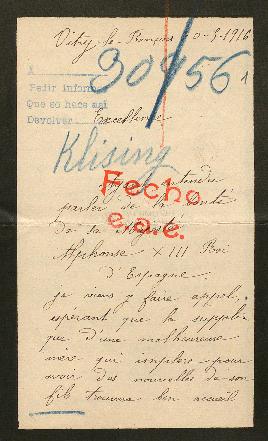 Vitry-le-François 0-9-1916
30/956
A
Pedir inform
Que so hace así
Devolver
Excellence
Klising
Ayant entendu
parler de la bonté
de sa Majesté
Alphonse XIII Roi
d'Espagne
Fecho
c.a.e.
je viens y faire appel,
espérant que la supplique
que d'une malheureuse
mère qui implore pour
avoir des nouvelles de son
fils trouvera bon accueil